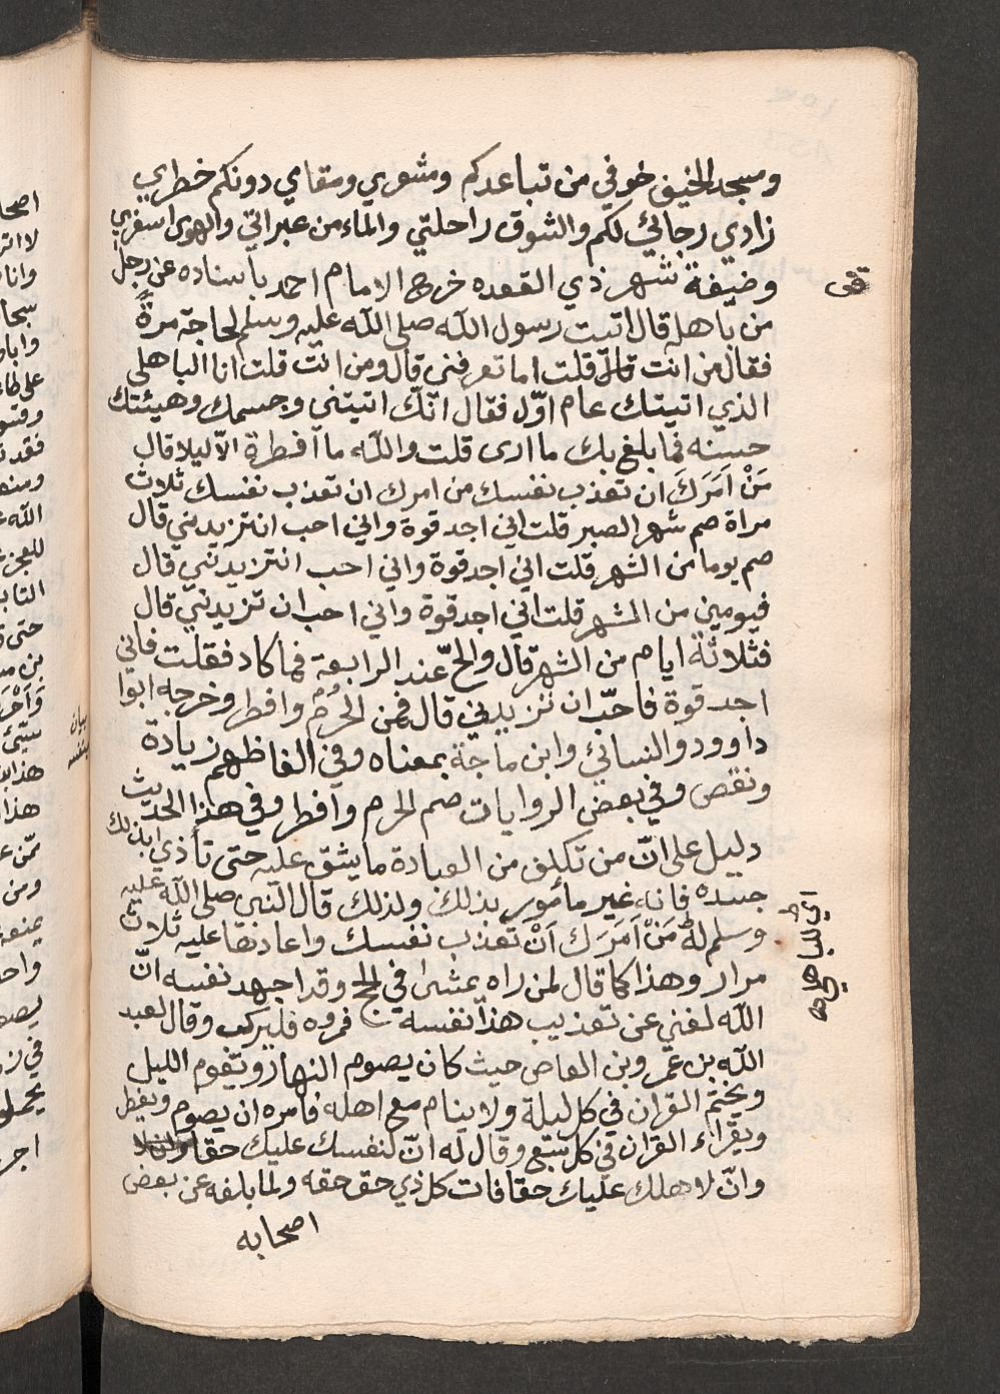 ومسجد الخيف خوفي من تباعدكم ومشعري ومقامي دونكم خطري
زادي رجائي لكم والشوق راحلتي والماء من عبراتي والهوى سفري
وضيفة شهر ذي القعده خرج الامام احمد باسناده عن رجل
من باهلة قال اتيت رسول الله صلى الله عليه وسلم لحاجة مرةً
فقال من انت قلت اما تعرفني قال ومن انت قلت انا الباهلي
الذي اتيتك عام اوّل فقال انّك اتيتني وجسمك وهيئتك
حسنه فما بلغ بك ما ارى قلت والله ما افطرة الاّ ليلا قال
مَنْ اَمَرَكَ ان تعذب نفسك من امرك ان تعذب نفسك ثلاث
مراة صم شهر الصبر قلت اني اجد قوة واني احب انتزيدني قال
صم يوما من الشهر قلت اني اجد قوة واني احب انتزيدني قال
فيومين من الشهر قلت اني اجد قوة واني احب ان تزيدني قال
فثلاثة ايام من الشهر قال والحّ عند الرابعة فما كاد فقلت فاني
اجد قوة فاحبّ ان تزيدني قال فمن الحُرُم وافطر وخرجه ابوا
داوود والنسائي وابن ماجة بمعناه وفي الفاظهم زيادة
ونقص وفي بعض الروايات صم الحرم وافطر وفي هذا الحديث
دليل على انّ من تكلف من العبادة ما يشق عليه حتى تأذي بذلك
جسده فانه غير مأمور بذلك ولذلك قال النبي صلى الله عليه
وسلم له مَنْ اَمَرَك اَنْ تعذب نفسك واعادها عليه ثلاث
مرار وهذا كما قال لمن راه يمشي في الحج وقد اجهد نفسه انّ
الله لغني عن تعذيب هذا نفسه فمروه فليركب وقال لعبد
الله بن عمر وبن العاص حيث كان يصوم النهار ويقوم الليل
ويختم القران في كل ليلة ولا ينام مع اهله فامره ان يصوم ويفطر
ويقراء القران في كل سبع وقال له انّ لنفسك عليك حقا
وانّ لاهلك عليك حقا فات كل ذي حق حقه ولما بلغه عن بعض
اصحابه
اي للباهلي